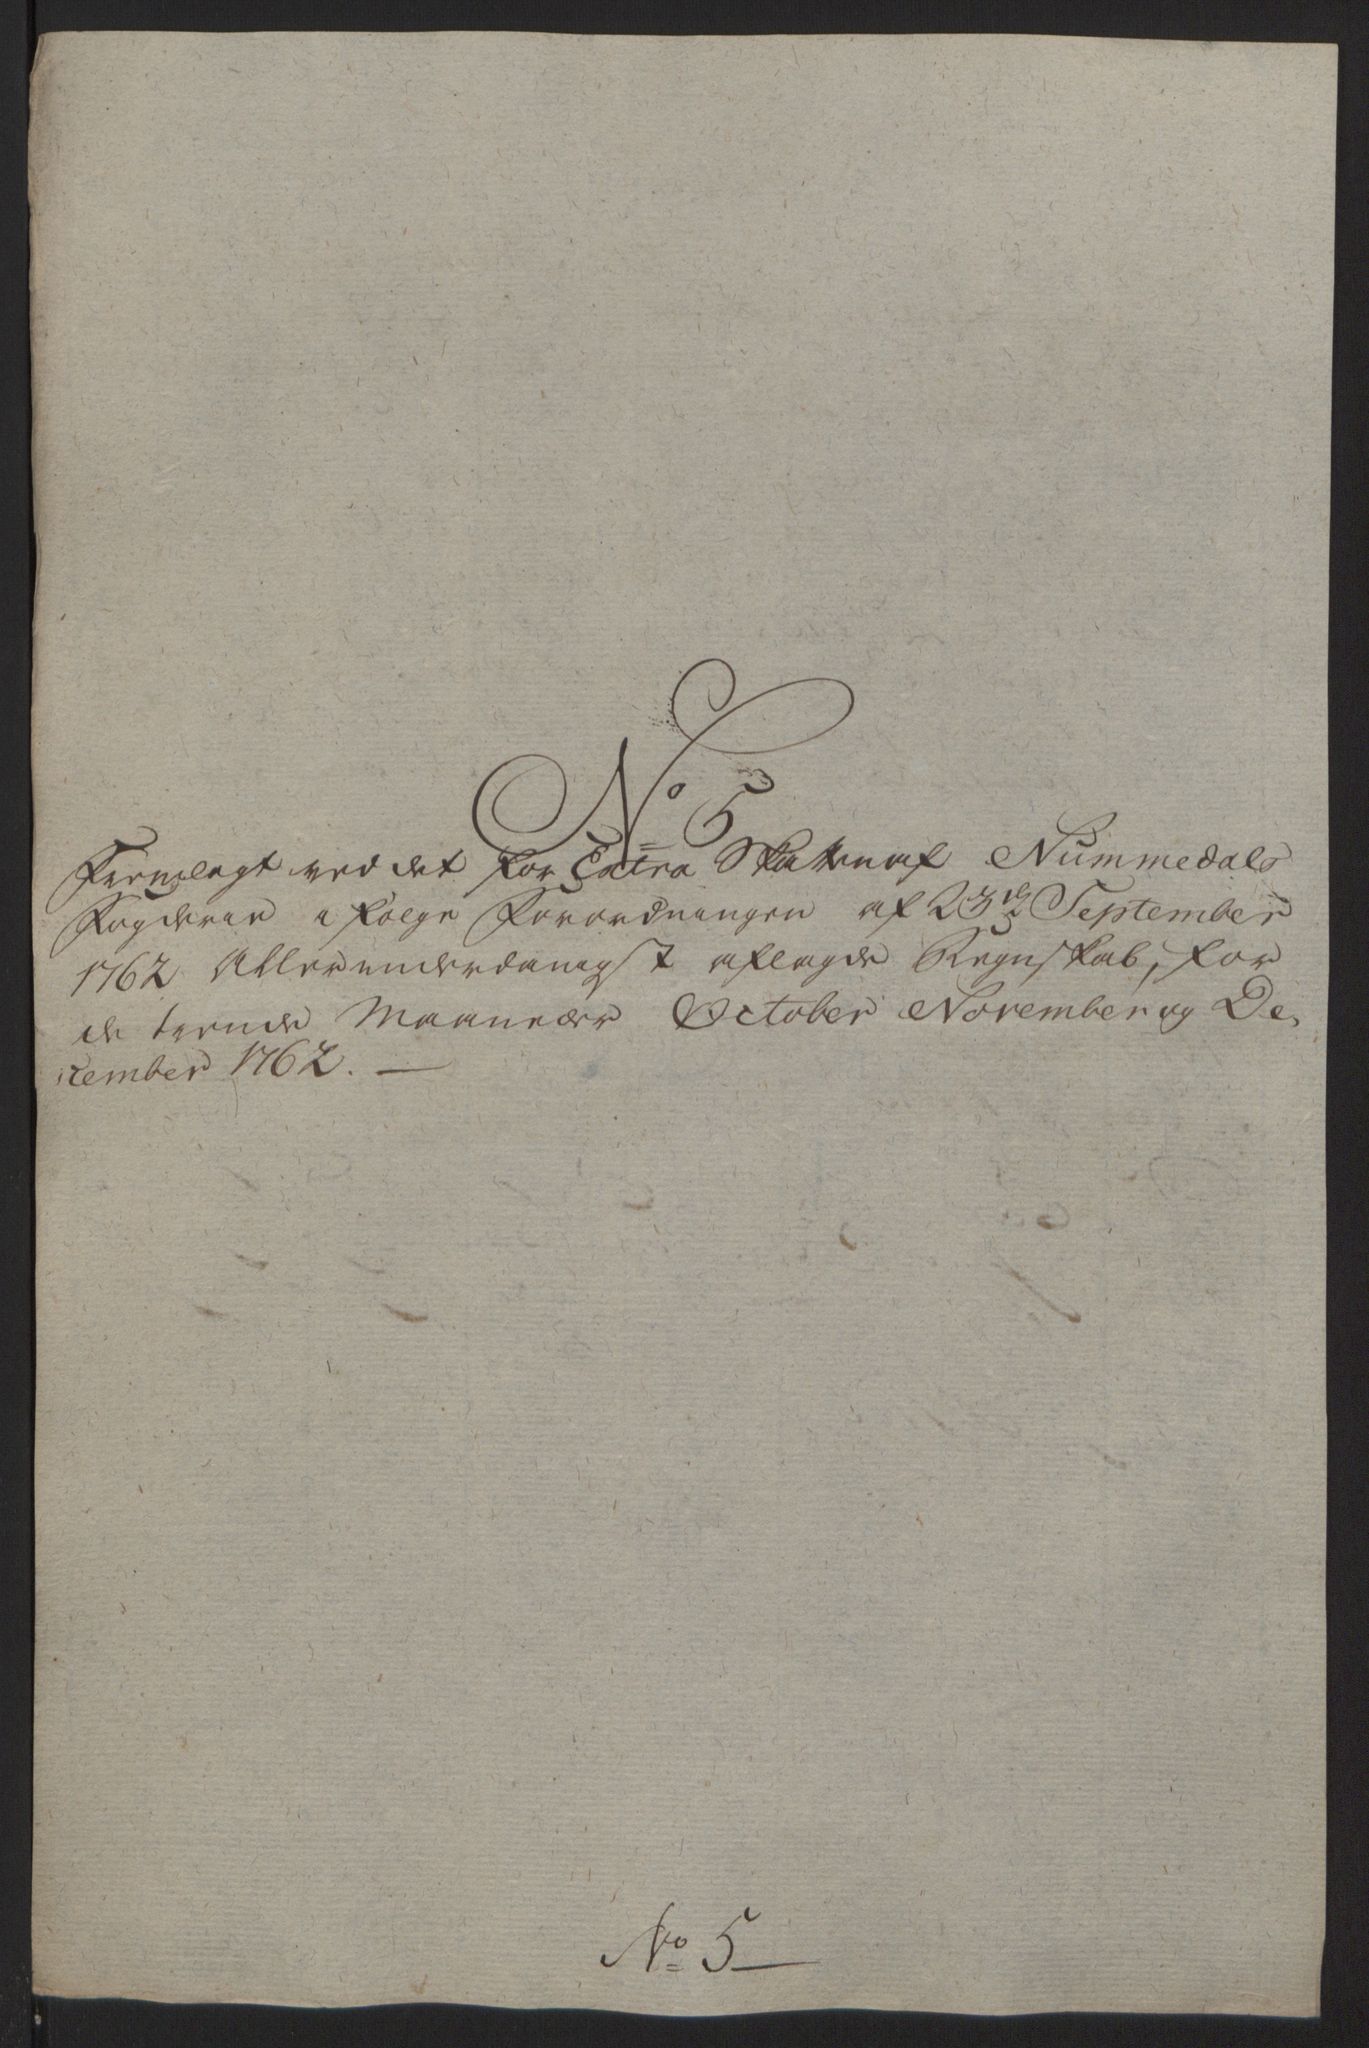 No 5
Fremlagt ved det for Extra Skatten af Nummedals
Fogderie i følge Forordningen af 23de September
1762 Allerunderdanigst aflagde Regnskab, for
de trende Maaneder October November og De,
cember 1762. —
No 5 —